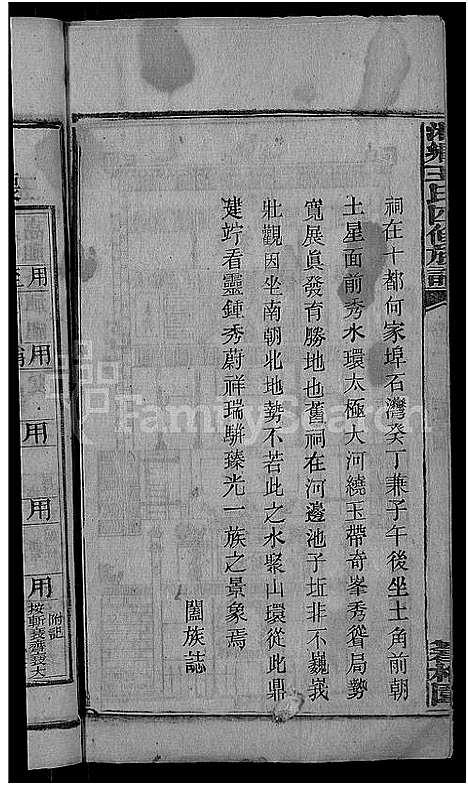 湘鄉王氏四修族譜
祠在十都何家埠石灣癸丁兼子午後坐土角前朝
土星面前秀水環太極大河繞玉帶奇峯秀聳局勢
寬展眞發育勝地也舊祠在河邊池子坵非不巍峩
壯觀因坐南朝北地勢不若此之水聚山環從此鼎
建竚看靈鍾秀蔚祥瑞駢臻光一族之景象焉
闔族誌
用
用
用
用
用
附記
按斬衰齊衰大
FamilySearch